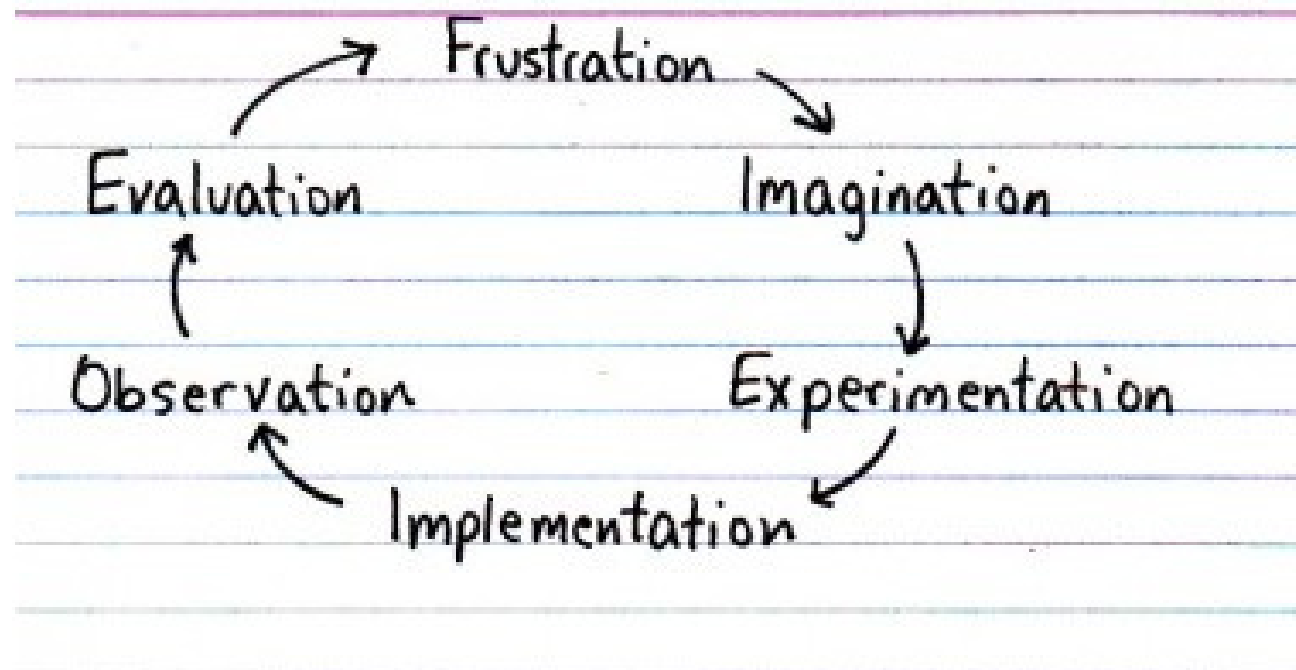 Frustration
Imagination
Experimentation
Implementation
Observation
Evaluation